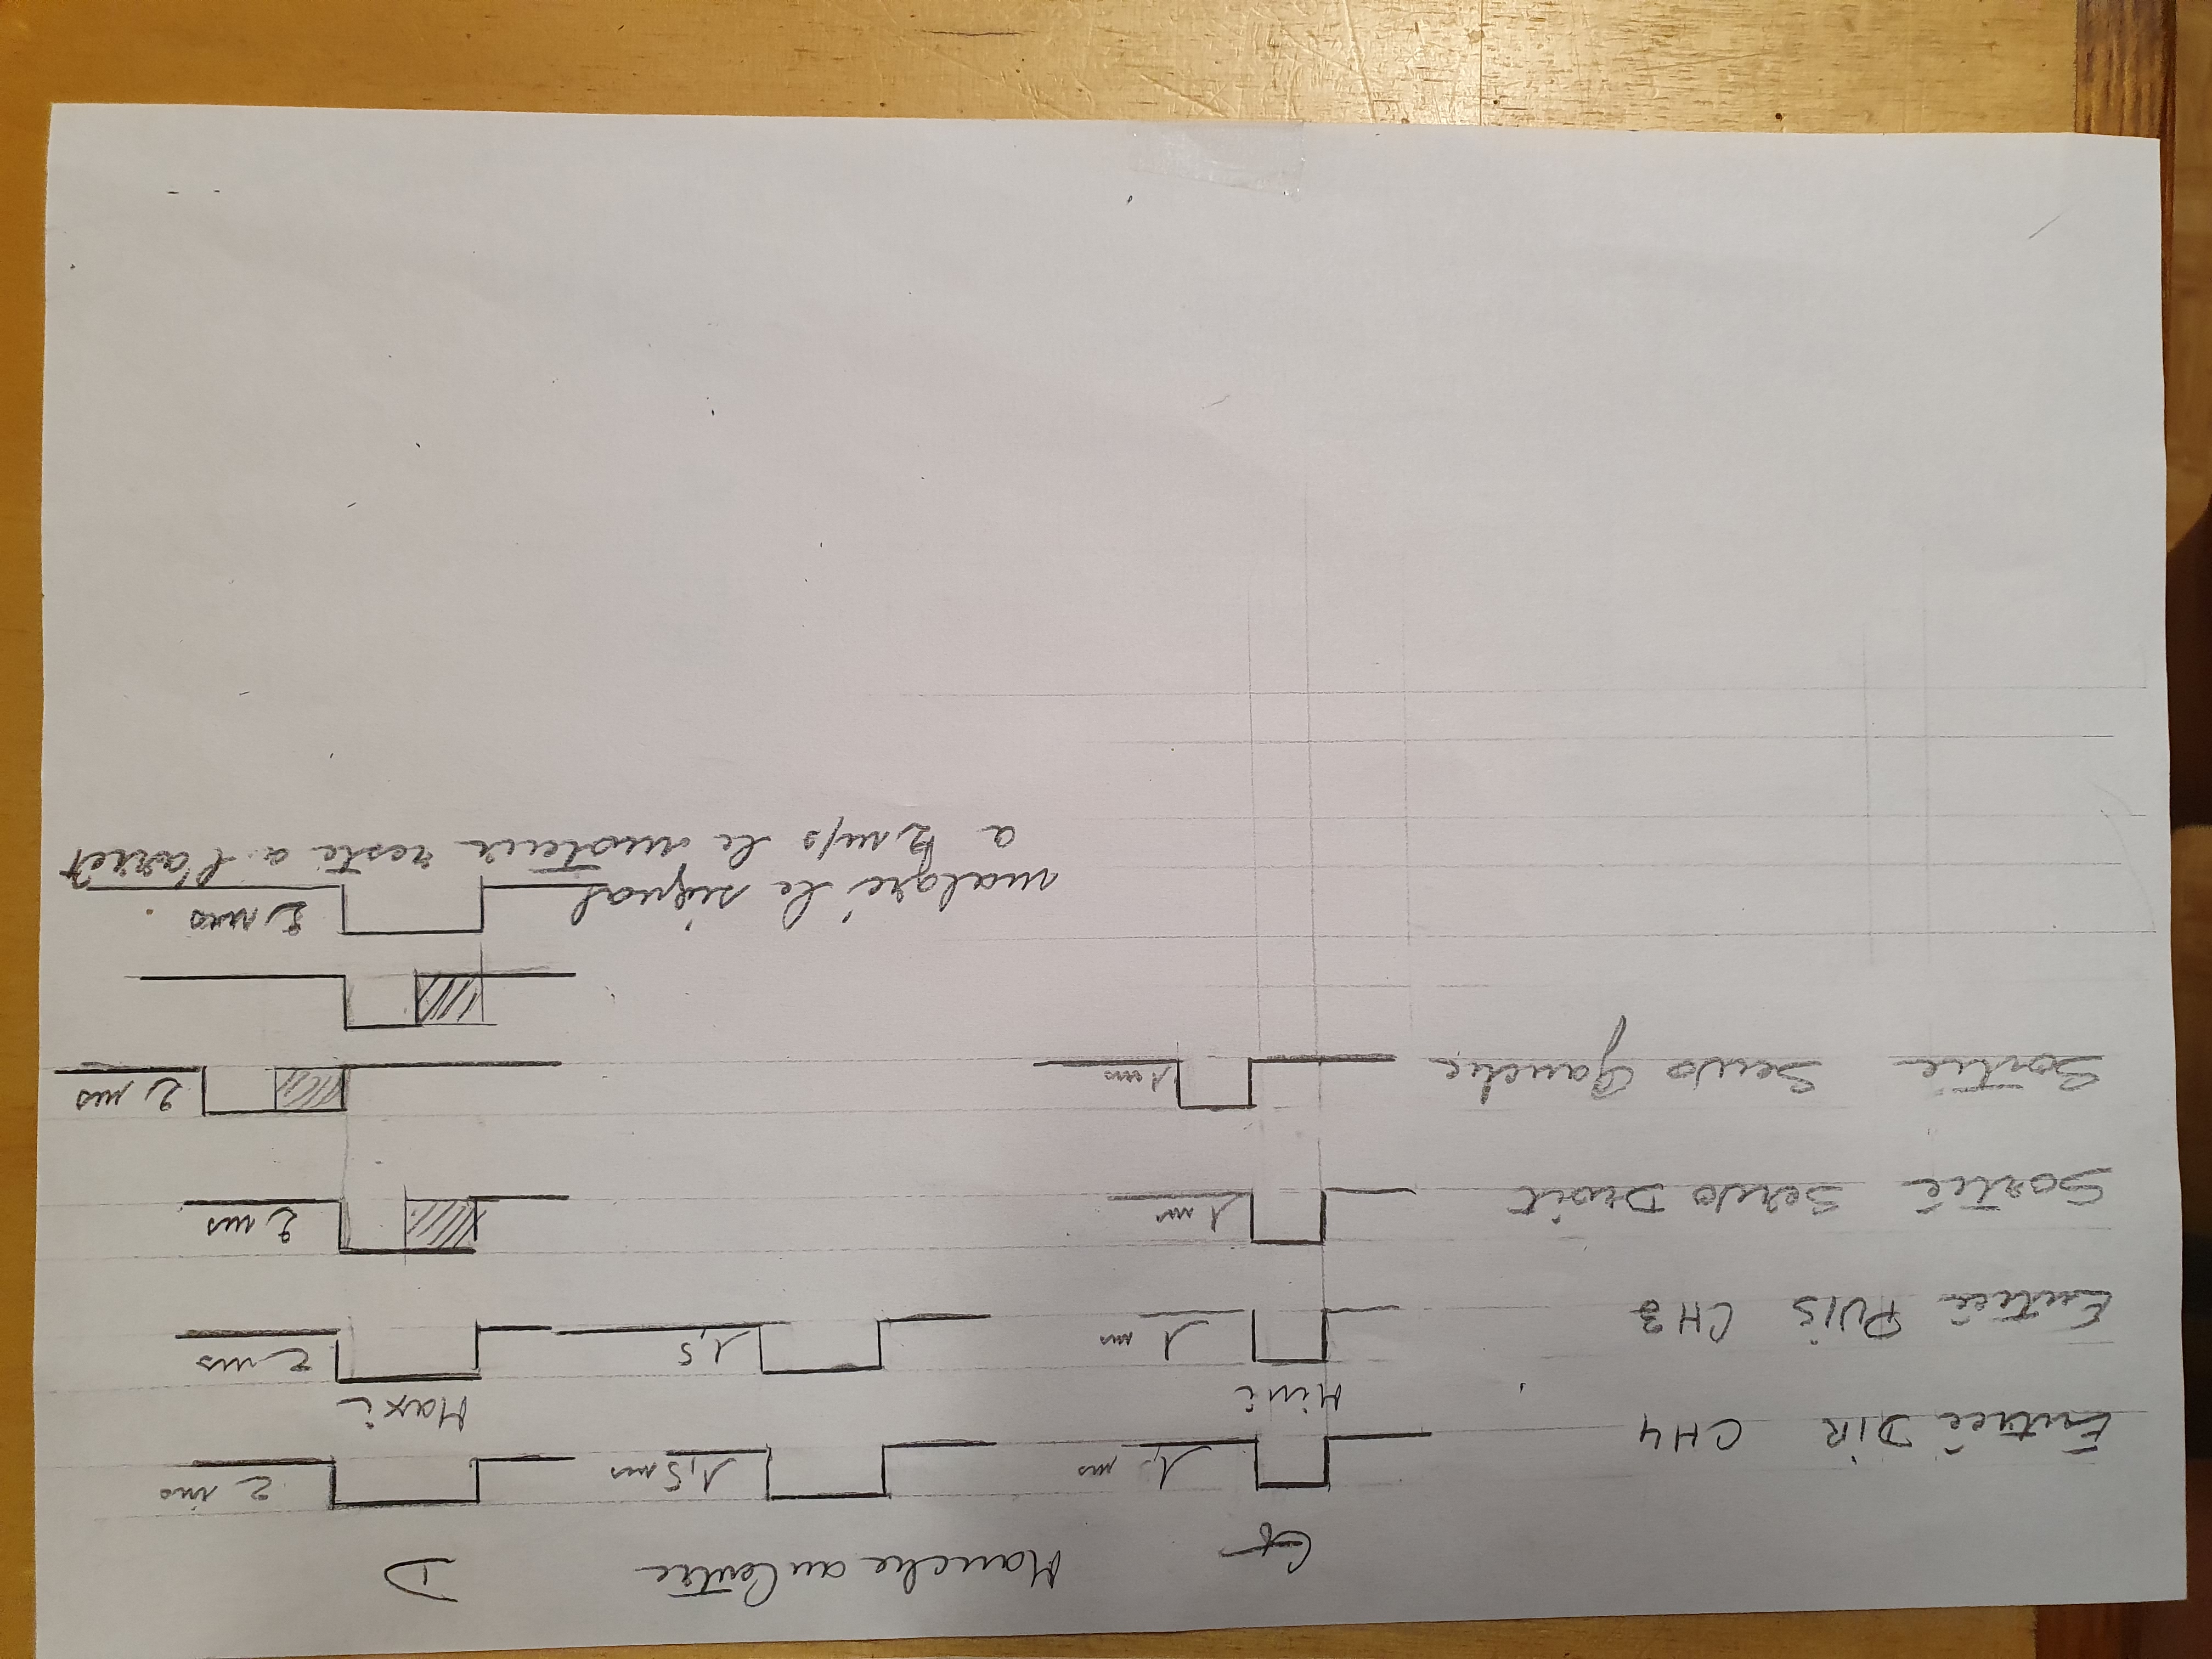 G Manche au Centre D
Entrée DIR CH4 1 ms 1,5 ms 2 ms
Mini Maxi
Entrée PUIS CH3 1 ms 1,5 2 ms
Sortie Servo Droit 1 ms 2 ms
Sortie Servo gauche 1 ms 2 ms
2 ms
malgré le signal
a 2 m/s le moteur reste a l'arret